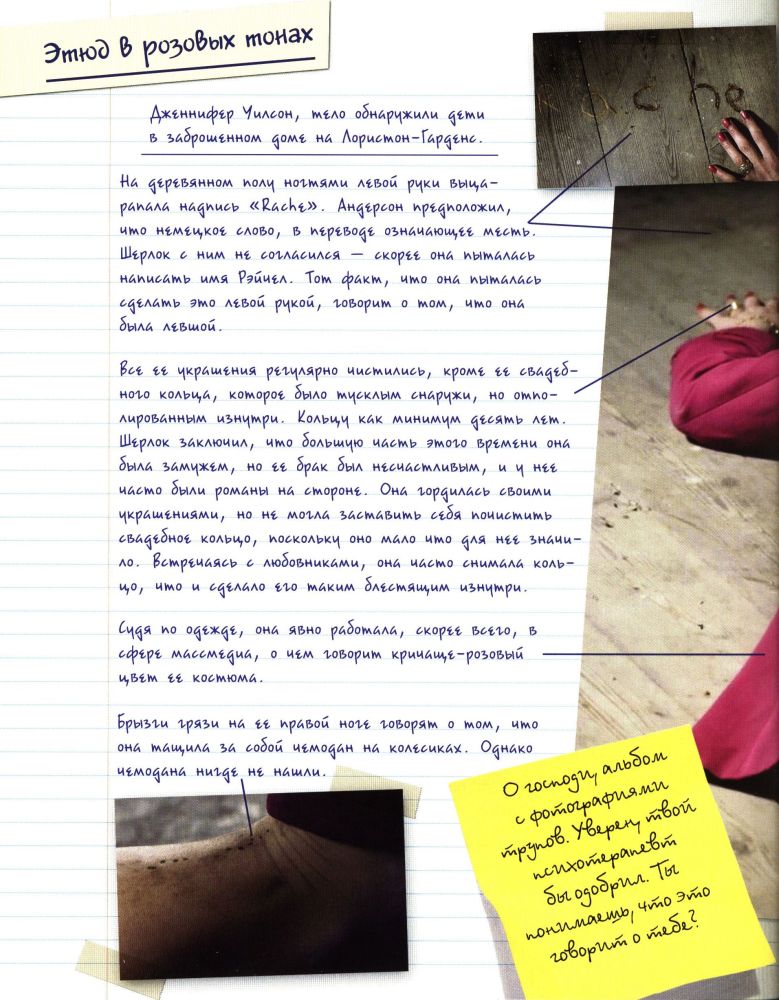 Этюд в розовых тонах
Дженнифер Уилсон, тело обнаружили дети
в заброшенном доме на Лористон-Гарденс.
На деревянном полу ногтями левой руки выца-
рапала надпись «Rache». Андерсон предположил,
что немецкое слово, в переводе означающее месть.
Шерлок с ним не согласился — скорее она пыталась
написать имя Рэйчел. Тот факт, что она пыталась
сделать это левой рукой, говорит о том, что она
была левшой.
Все ее украшения регулярно чистились, кроме ее свадеб-
ного кольца, которое было тусклым снаружи, но отпо-
лированным изнутри. Кольцу как минимум десять лет.
Шерлок заключил, что большую часть этого времени она
была замужем, но ее брак был несчастливым, и у нее
часто были романы на стороне. Она гордилась своими
украшениями, но не могла заставить себя почистить
свадебное кольцо, поскольку оно мало что для нее значи-
ло. Встречаясь с любовниками, она часто снимала коль-
цо, что и сделало его таким блестящим изнутри.
Судя по одежде, она явно работала, скорее всего, в
сфере массмедиа, о чем говорит кричаще-розовый
цвет ее костюма.
Брызги грязи на ее правой ноге говорят о том, что
она тащила за собой чемодан на колесиках. Однако
чемодана нигде не нашли.
Rache
О господи, альбом
с фотографиями
трупов. Уверен, твой
психотерапевт
бы одобрил. Ты
понимаешь, что это
говорит о тебе?